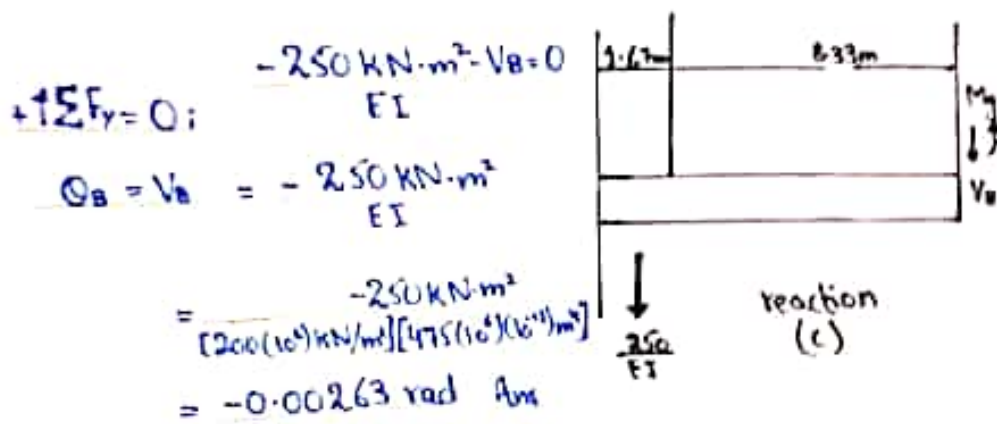 +↑ΣFy = 0; -250 KN·m² - VB = 0
EI
θB = VB = - 250 KN·m²
EI
= -250 KN·m²
[200(10⁶) KN/m²][475(10⁶)(10⁻¹²)m⁴]
= -0.00263 rad Ans
1.67m 8.33m
VB
250
EI
reaction
(c)